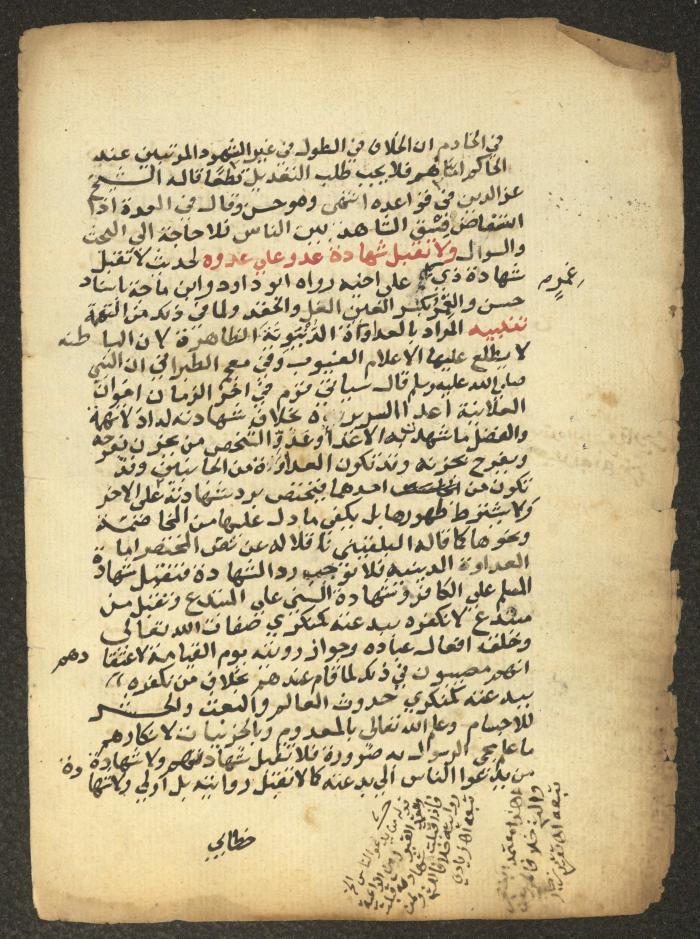 في الخادم ان الخلاف في الطول في غير الشهود المرتبين عند
الحاكم اما هم فلا يجب طلب التعديل قطعا قاله الشيخ
عز الدين في قواعده انتهى وهو حسن وقال في العدة اذا
استفاض فسق الشاهد بين الناس فلا حاجة الى البحث
والسوال ولا تقبل شهادة عدو على عدوه لحديث لا تقبل
شهادة ذي غمر على اخيه رواه ابو داود وابن ماجة باسناد
حسن والغمر بكسر الغين الغل والحقد ولما في ذلك من التهمة
تنبيه المراد بالعداوة الدنيوية الظاهرة لان الباطنه
لا يطلع عليها الا علام الغيوب وفي معجم الطبراني ان النبي
صلى الله عليه وسلم قال سياتي قوم في اخر الزمان اخوان
العلانية اعدا السريرة بخلاف شهادته له اذ لا تهمة
والفضل ما شهدت به الاعدا وعدو الشخص من يحزن بفرحه
ويفرح بحزنه وقد تكون العداوة من الجانبين وقد
تكون من احدهما فيختص برد شهادته على الاخر
ولا يشترط ظهورها بل يكفي ما دل عليها من المخاصمة
ونحوها كما قاله البلقيني ناقلا له عن نص المختصر اما
العداوة الدينيه فلا توجب رد الشهادة فتقبل شهادة
المسلم على الكافر وشهادة السني على المبتدع وتقبل من
مبتدع لا نكفره ببدعته كمنكري صفات الله تعالى
وخلقه افعال عباده وجواز رويته يوم القيامة لاعتقادهم
انهم مصيبون في ذلك لما قام عندهم بخلاف من نكفره
ببدعته كمنكري حدوث العالم والبعث والحشر
للاجسام وعلم الله تعالى بالمعدوم وبالجزئيات لانكارهم
ما علم مجي الرسول به ضرورة فلا تقبل شهادتهم ولا شهادة
من يدعوا الناس الى بدعته كما لا تقبل روايته بل اولى ولا شهادة
خطابي
غمر